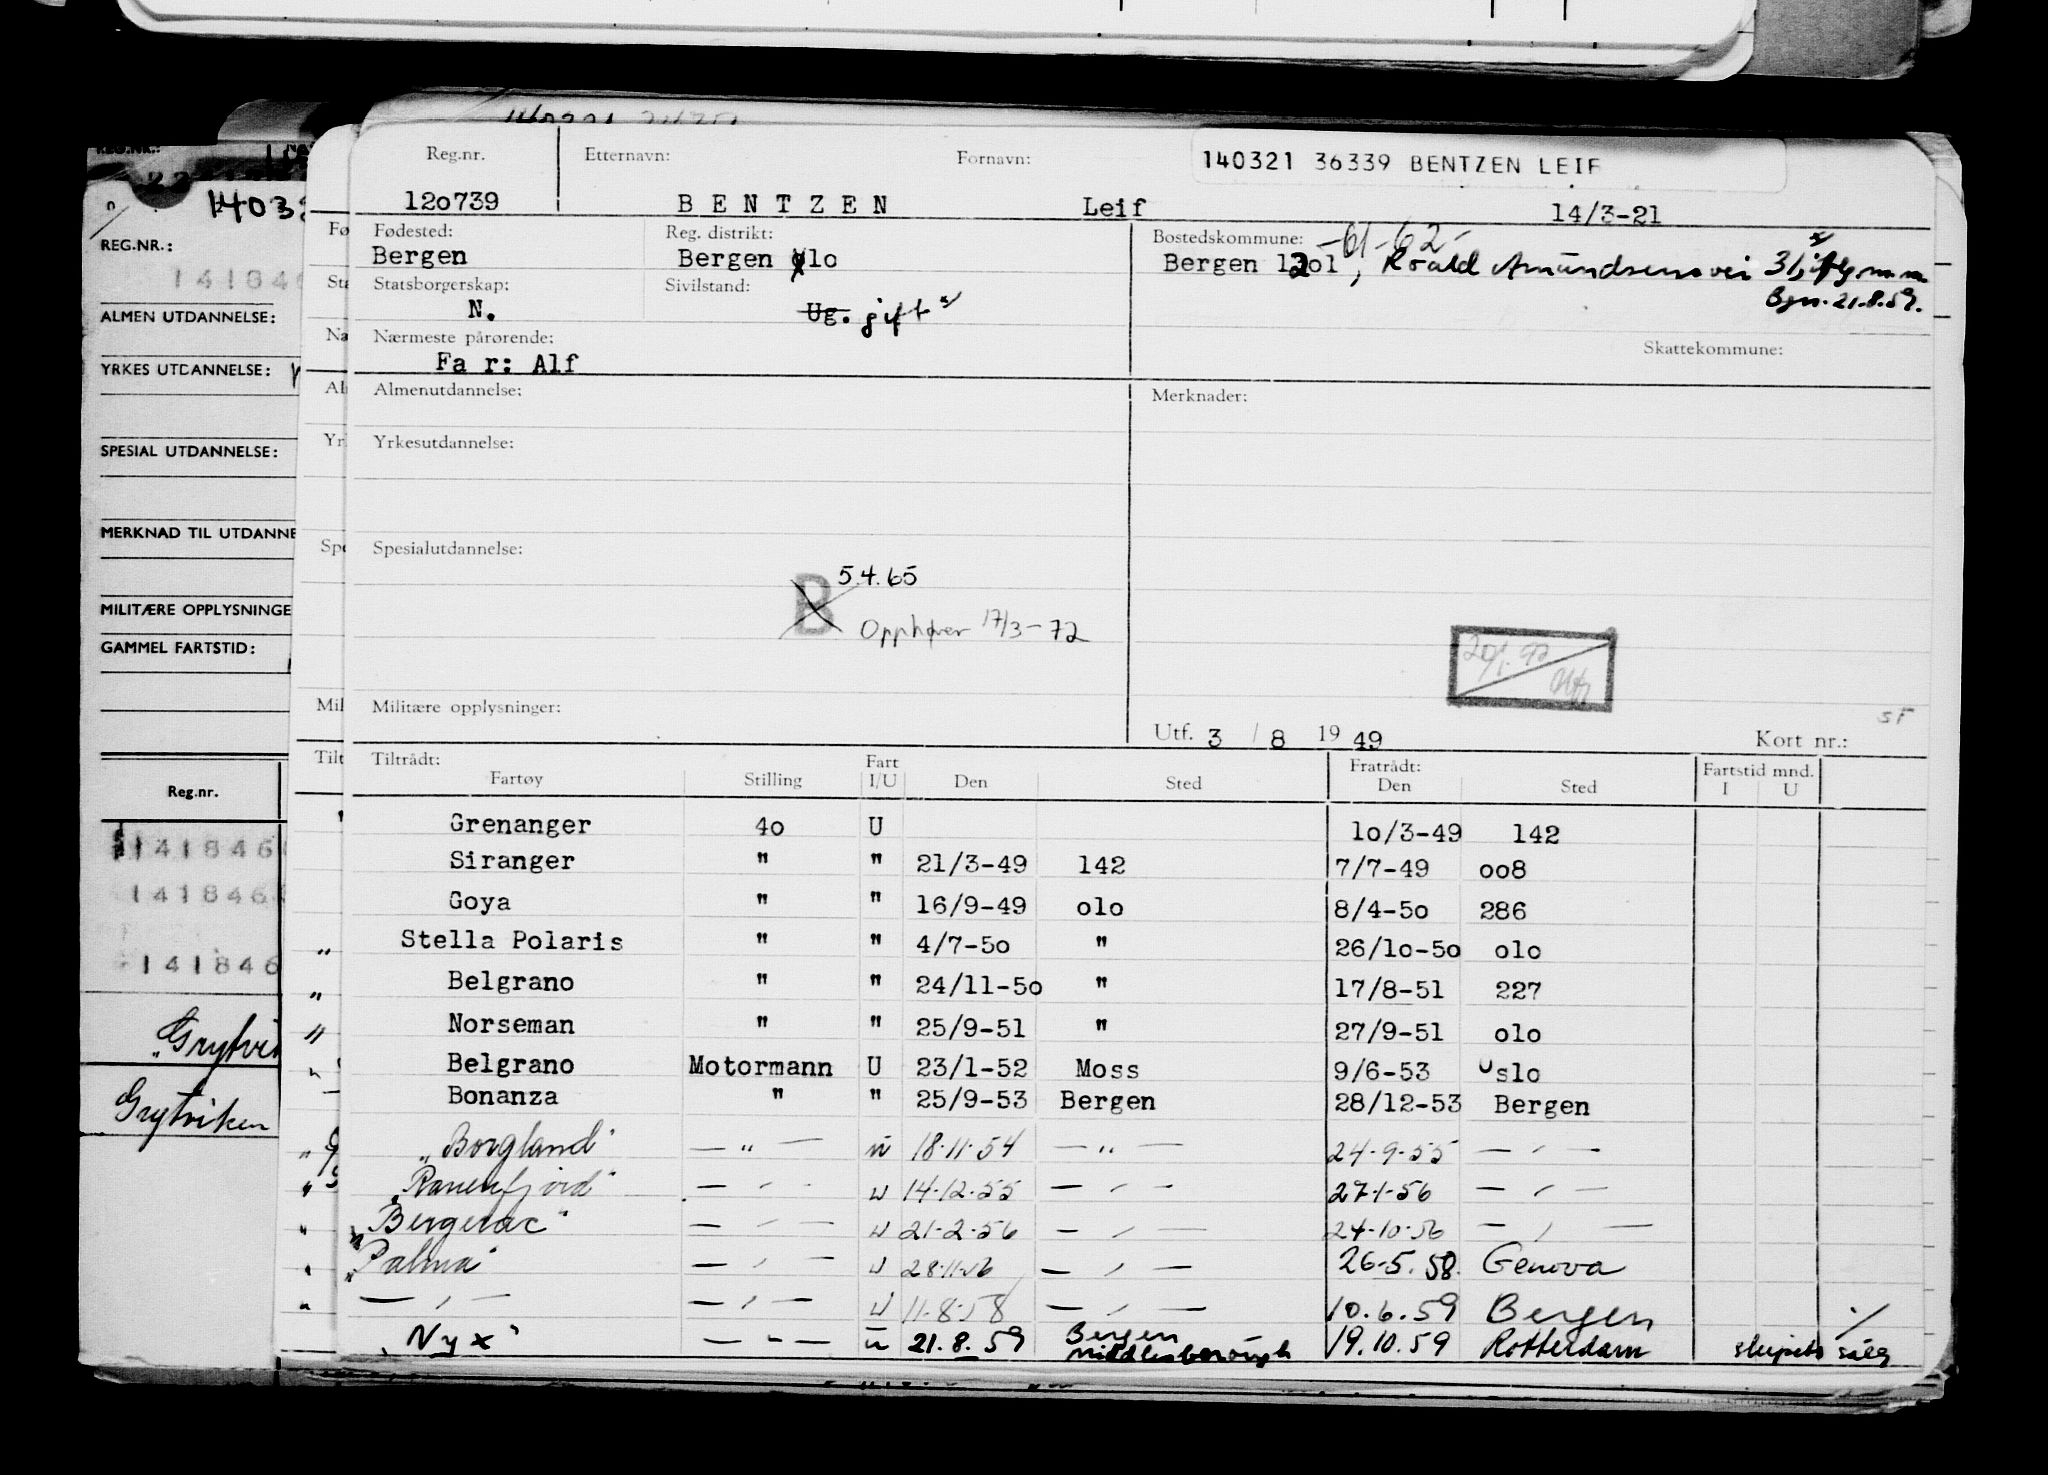 Reg.nr. Etternavn: Fornavn: 140321 36339 BENTZEN LEIF
120739 BENTZEN Leif 14/3-21
Fødested: Reg. distrikt: Bostedskommune: -61-62-
Bergen Bergen olo Bergen 1201, Roald Amundsens vei 31, iflg m.m.
Bgn. 21.8.59.
Statsborgerskap: Sivilstand:
N. Ug. gift x/
Nærmeste pårørende: Skattekommune:
Fa r: Alf
Almenutdannelse: Merknader:
Yrkesutdannelse:
Spesialutdannelse:
B 5.4.65
Opphører 17/3-72
Militære opplysninger:
Utf. 3 / 8 1949 Kort nr.:
Tiltrådt: Fart Fratrådt: Fartstid mnd.
Fartøy Stilling I/U Den Sted Den Sted I U
Grenanger 4o U 1o/3-49 142
Siranger " " 21/3-49 142 7/7-49 oo8
Goya " " 16/9-49 olo 8/4-5o 286
Stella Polaris " " 4/7-5o " 26/1o-5o olo
Belgrano " " 24/11-5o " 17/8-51 227
Norseman " " 25/9-51 " 27/9-51 olo
Belgrano Motormann U 23/1-52 Moss 9/6-53 Oslo
Bonanza " " 25/9-53 Bergen 28/12-53 Bergen
"Borgland" — " — u 18.11.54 — " — 24.9.55 — " —
"Ranenfjord" — " — u 14.12.55 — " — 27.1.56 — " —
"Bergerac" — " — u 21.2.56 — " — 24.10.56 — " —
"Palma" — " — u 28.11.56 — " — 26.5.58. Genova
— " — — " — u 11.8.58 — " — 10.6.59 Bergen ./
"Nyx" — " — u 21.8.59 Bergen 19.10.59 Rotterdam skipets salg
Middlesborough
REG.NR.:
ALMEN UTDANNELSE:
YRKES UTDANNELSE:
SPESIAL UTDANNELSE:
MERKNAD TIL UTDANNE
MILITÆRE OPPLYSNINGE
GAMMEL FARTSTID:
Reg.nr.
141846
141846
141846
"Grytvi
Grytviken